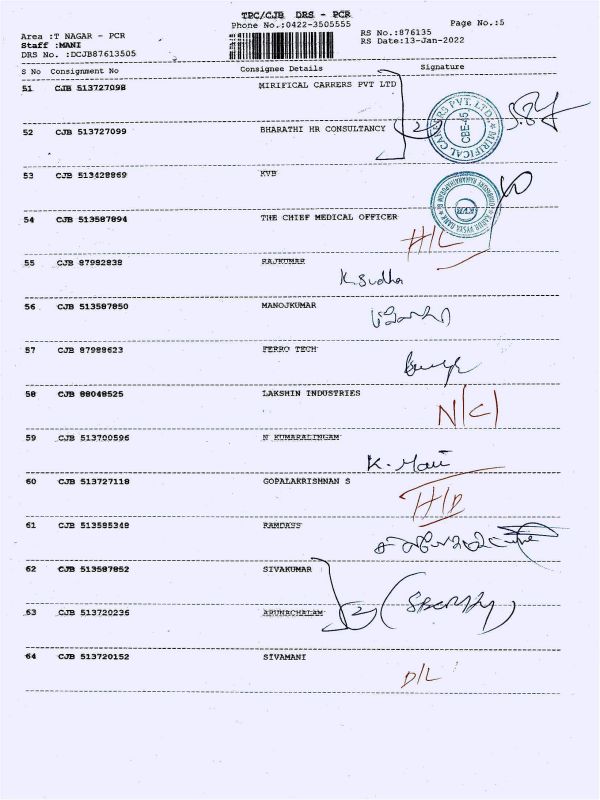 TPC/CJB DRS - PCR
Phone No.:0422-3505555
Page No.:5
Area :T NAGAR - PCR
RS No.:876135
Staff :MANI
RS Date:13-Jan-2022
DRS No. :DCJB87613505
S No Consignment No Consignee Details Signature
51 CJB 513727098 MIRIFICAL CARRERS PVT LTD
MIRIFICAL CARRERS PVT. LTD. CBE-45
52 CJB 513727099 BHARATHI HR CONSULTANCY 2
53 CJB 513428869 KVB
KARUR VYSYA BANK KVB
54 CJB 513587894 THE CHIEF MEDICAL OFFICER
H/L
55 CJB 87982838 RAJKUMAR
K. Sudha
56 CJB 513587850 MANOJKUMAR
57 CJB 87988623 FERRO TECH
58 CJB 88048525 LAKSHIN INDUSTRIES
N/C/
59 CJB 513700596 N KUMARALINGAM
K. Mani
60 CJB 513727118 GOPALAKRISHNAN S
H/D
61 CJB 513585348 RAMDASS
62 CJB 513587852 SIVAKUMAR
63 CJB 513720236 ARUNACHALAM 2
64 CJB 513720152 SIVAMANI
D/L